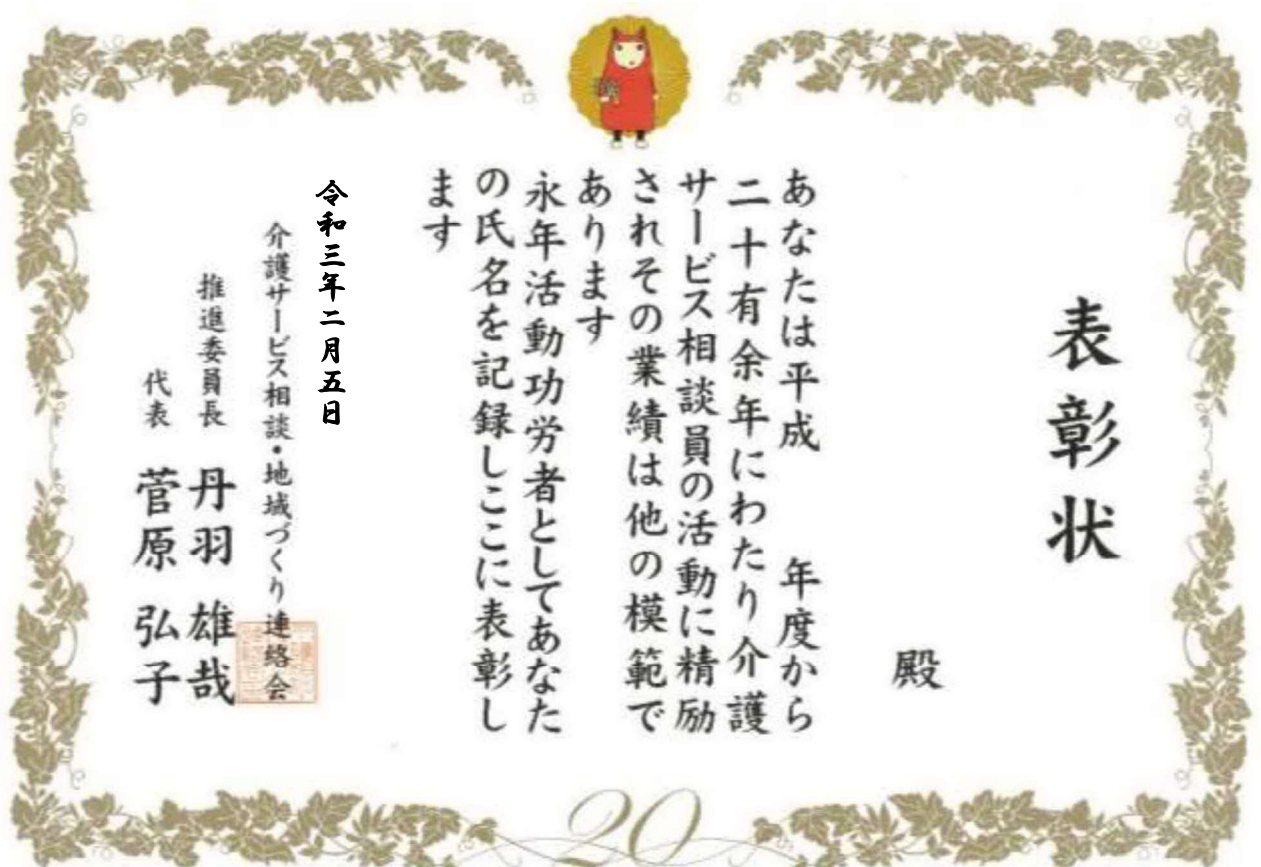 表彰状
殿
あなたは平成　　年度から
二十有余年にわたり介護
サービス相談員の活動に精励
されその業績は他の模範で
あります
永年活動功労者としてあなた
の氏名を記録しここに表彰し
ます
令和三年二月五日
介護サービス相談・地域づくり連絡会
推進委員長　丹羽　雄哉
代表　菅原　弘子
20